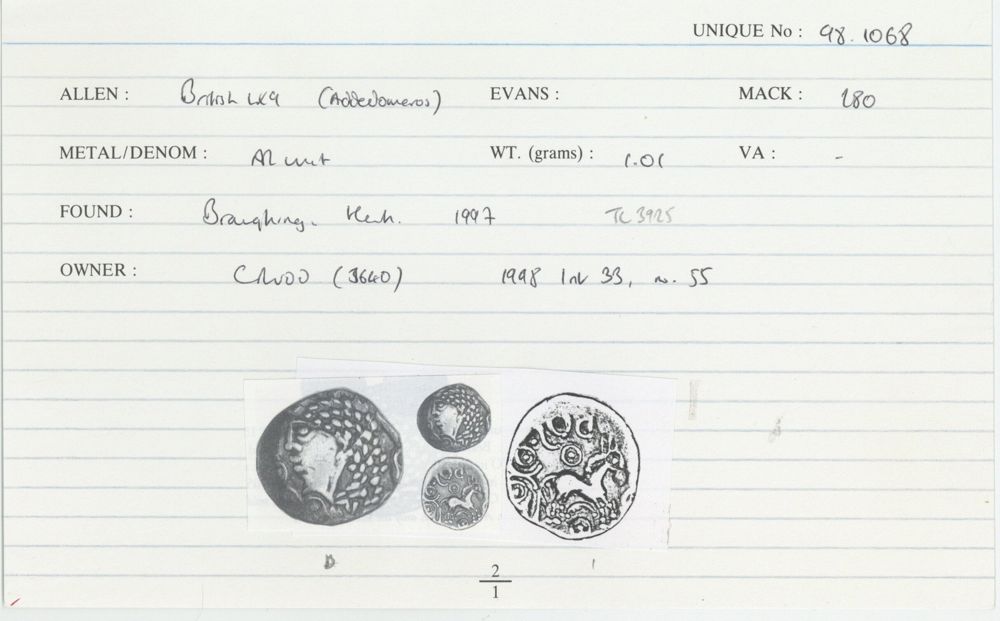 UNIQUE No : 98.1068
ALLEN : British LX9 (Addedomaros) EVANS : MACK : 280
METAL/DENOM : AR unit WT. (grams) : 1.01 VA : -
FOUND : Braughing, Herts. 1997 TC 3925
OWNER : (3640) 1998 33, no. 55
D 1
2
1